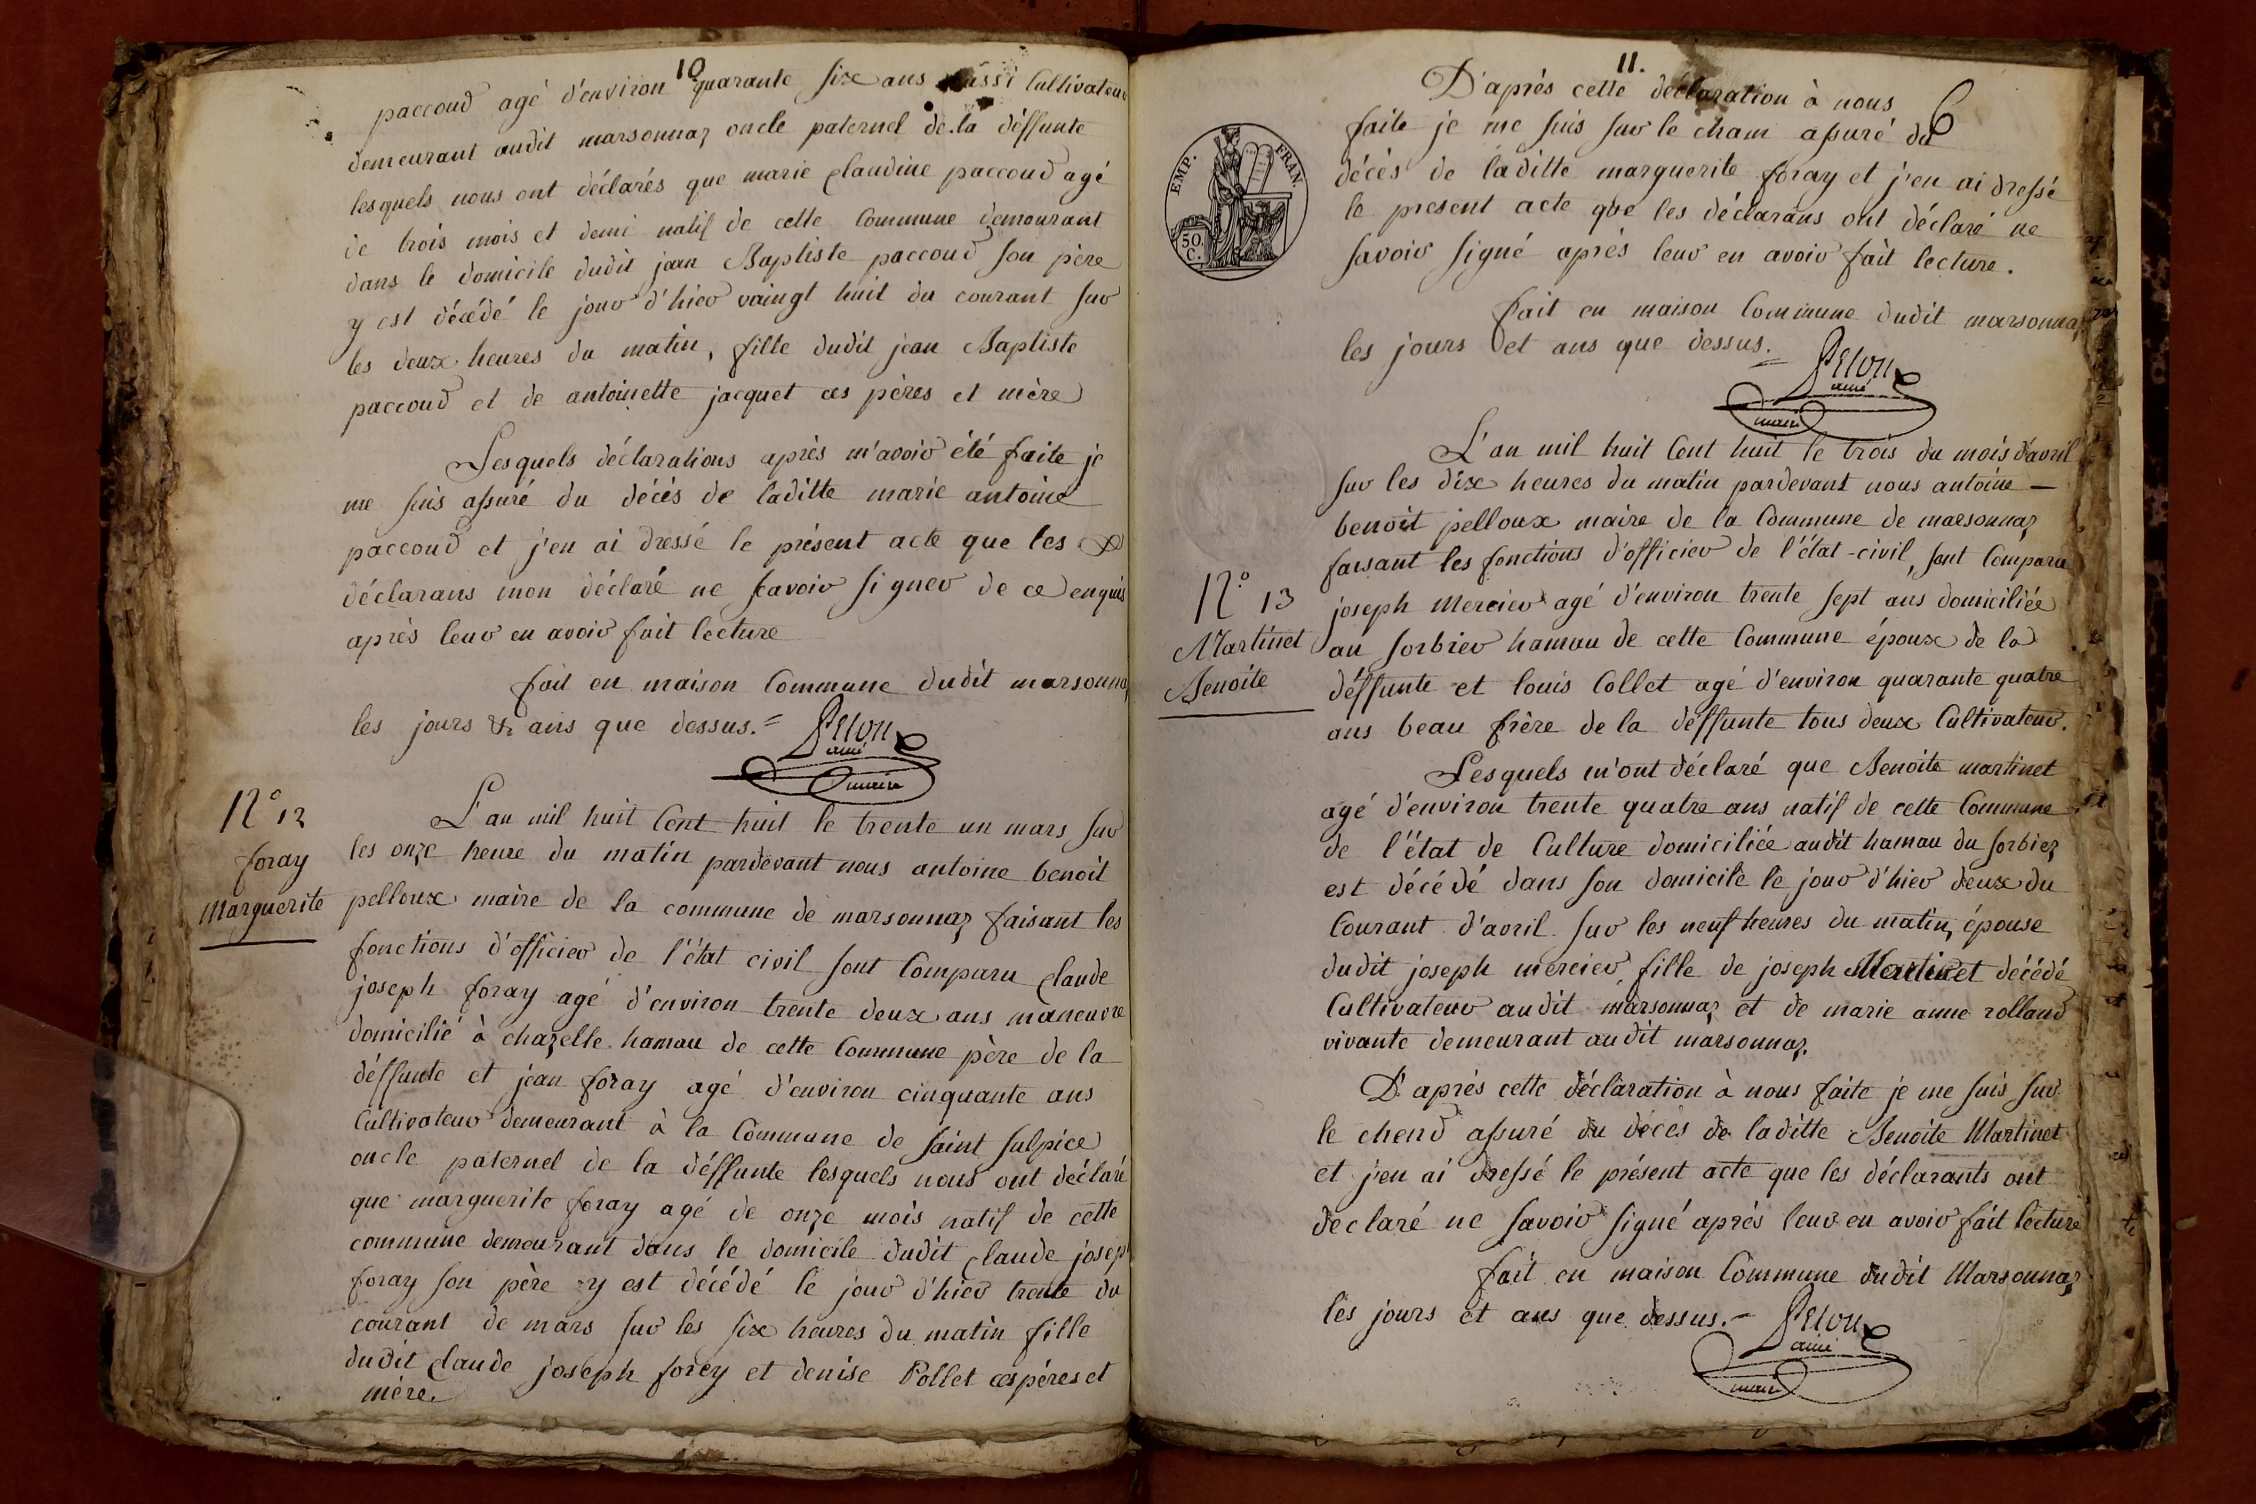 10
paccoud agé d'environ quarante six ans aussi Cultivateur
demeurant audit marsonnaz oncle paternel de la déffunte
lesquels nous ont déclarés que marie Claudine paccoud agé
de trois mois et demi natif de cette Commune demourant
dans le domicile dudit jean Baptiste paccoud son père
y est décédé le jour d'hier vaingt huit du courant sur
les deux heures du matin, fille dudit jean Baptiste
paccoud et de antoinette jacquet ces pères et mère
Lesquels déclarations après m'avoir été faite je
me suis assuré du décés de laditte marie antoine
paccoud et j'en ai dressé le présent acte que les
déclarans mon déclaré ne scavoir signer de ce enquis
après leur en avoir fait lecture
fait en maison Commune dudit marsonna
les jours & ans que dessus.=
ainé
maire
N.º 12
foray
Marguerite
L'an mil huit Cent huit le trente un mars sur
les onze heure du matin pardevant nous antoine benoit
pelloux maire de la commune de marsonnaz faisant les
fonctions d'officier de l'état civil sont Comparu Claude
joseph foray agé d'environ trente deux ans manœuvre
domicilié à chazelle hamau de cette Commune père de la
déffunte et jean foray agé d'environ cinquante ans
Cultivateur demeurant à la Commune de saint sulpice
oncle paternel de la déffunte lesquels nous ont déclaré
que marguerite foray agé de onze mois natif de cette
commune demeurant dans le domicile dudit Claude josep
foray son père y est décédé le jour d'hier trente du
courant de mars sur les six heures du matin fille
dudit Claude joseph forey et denise Pollet ces pères et
mère.
11.
6
EMP. FRAN.
50. C.
D'après cette déclaration à nous
faite je me suis sur le cham assuré du
décès de laditte marguerite foray et j'en ai dressé
le present acte que les déclarans ont déclaré ne
savoir signé après leur en avoir fait lecture.
fait en maison Commune dudit marsonnaz
les jours et ans que dessus.=
ainé
maire
N.º 13
Martinet
Benoite
L'an mil huit Cent huit le trois du mois d'avril
sur les dix heures du matin pardevant nous antoine —
benoit pelloux maire de la Commune de marsonnaz
faisant les fonctions d'officier de l'état-civil, sont Comparu
joseph Mercier agé d'environ trente sept ans domiciliée
au sorbier hamau de cette Commune époux de la
déffunte et louis Collet agé d'environ quarante quatre
ans beau frère de la déffunte tous deux Cultivateur.
Lesquels m'ont déclaré que Benoite martinet
agé d'environ trente quatre ans natif de cette Commune
de l'état de Culture domiciliée audit hamau du sorbiez
est décédé dans son domicile le jour d'hier deux du
Courant d'avril sur les neuf heures du matin, épouse
dudit joseph mercier fille de joseph Martinet décédé
Cultivateur audit marsonnaz et de marie anne rolland
vivante demeurant audit marsonnaz.
D'après cette déclaration à nous faite je me suis sur
le chend assuré du décès de laditte Benoite Martinet
et j'en ai dressé le présent acte que les déclarants ont
declaré ne savoir signé après leur en avoir fait lecture
fait en maison Commune dudit Marsonnaz
les jours et ans que dessus.=
ainé
maire